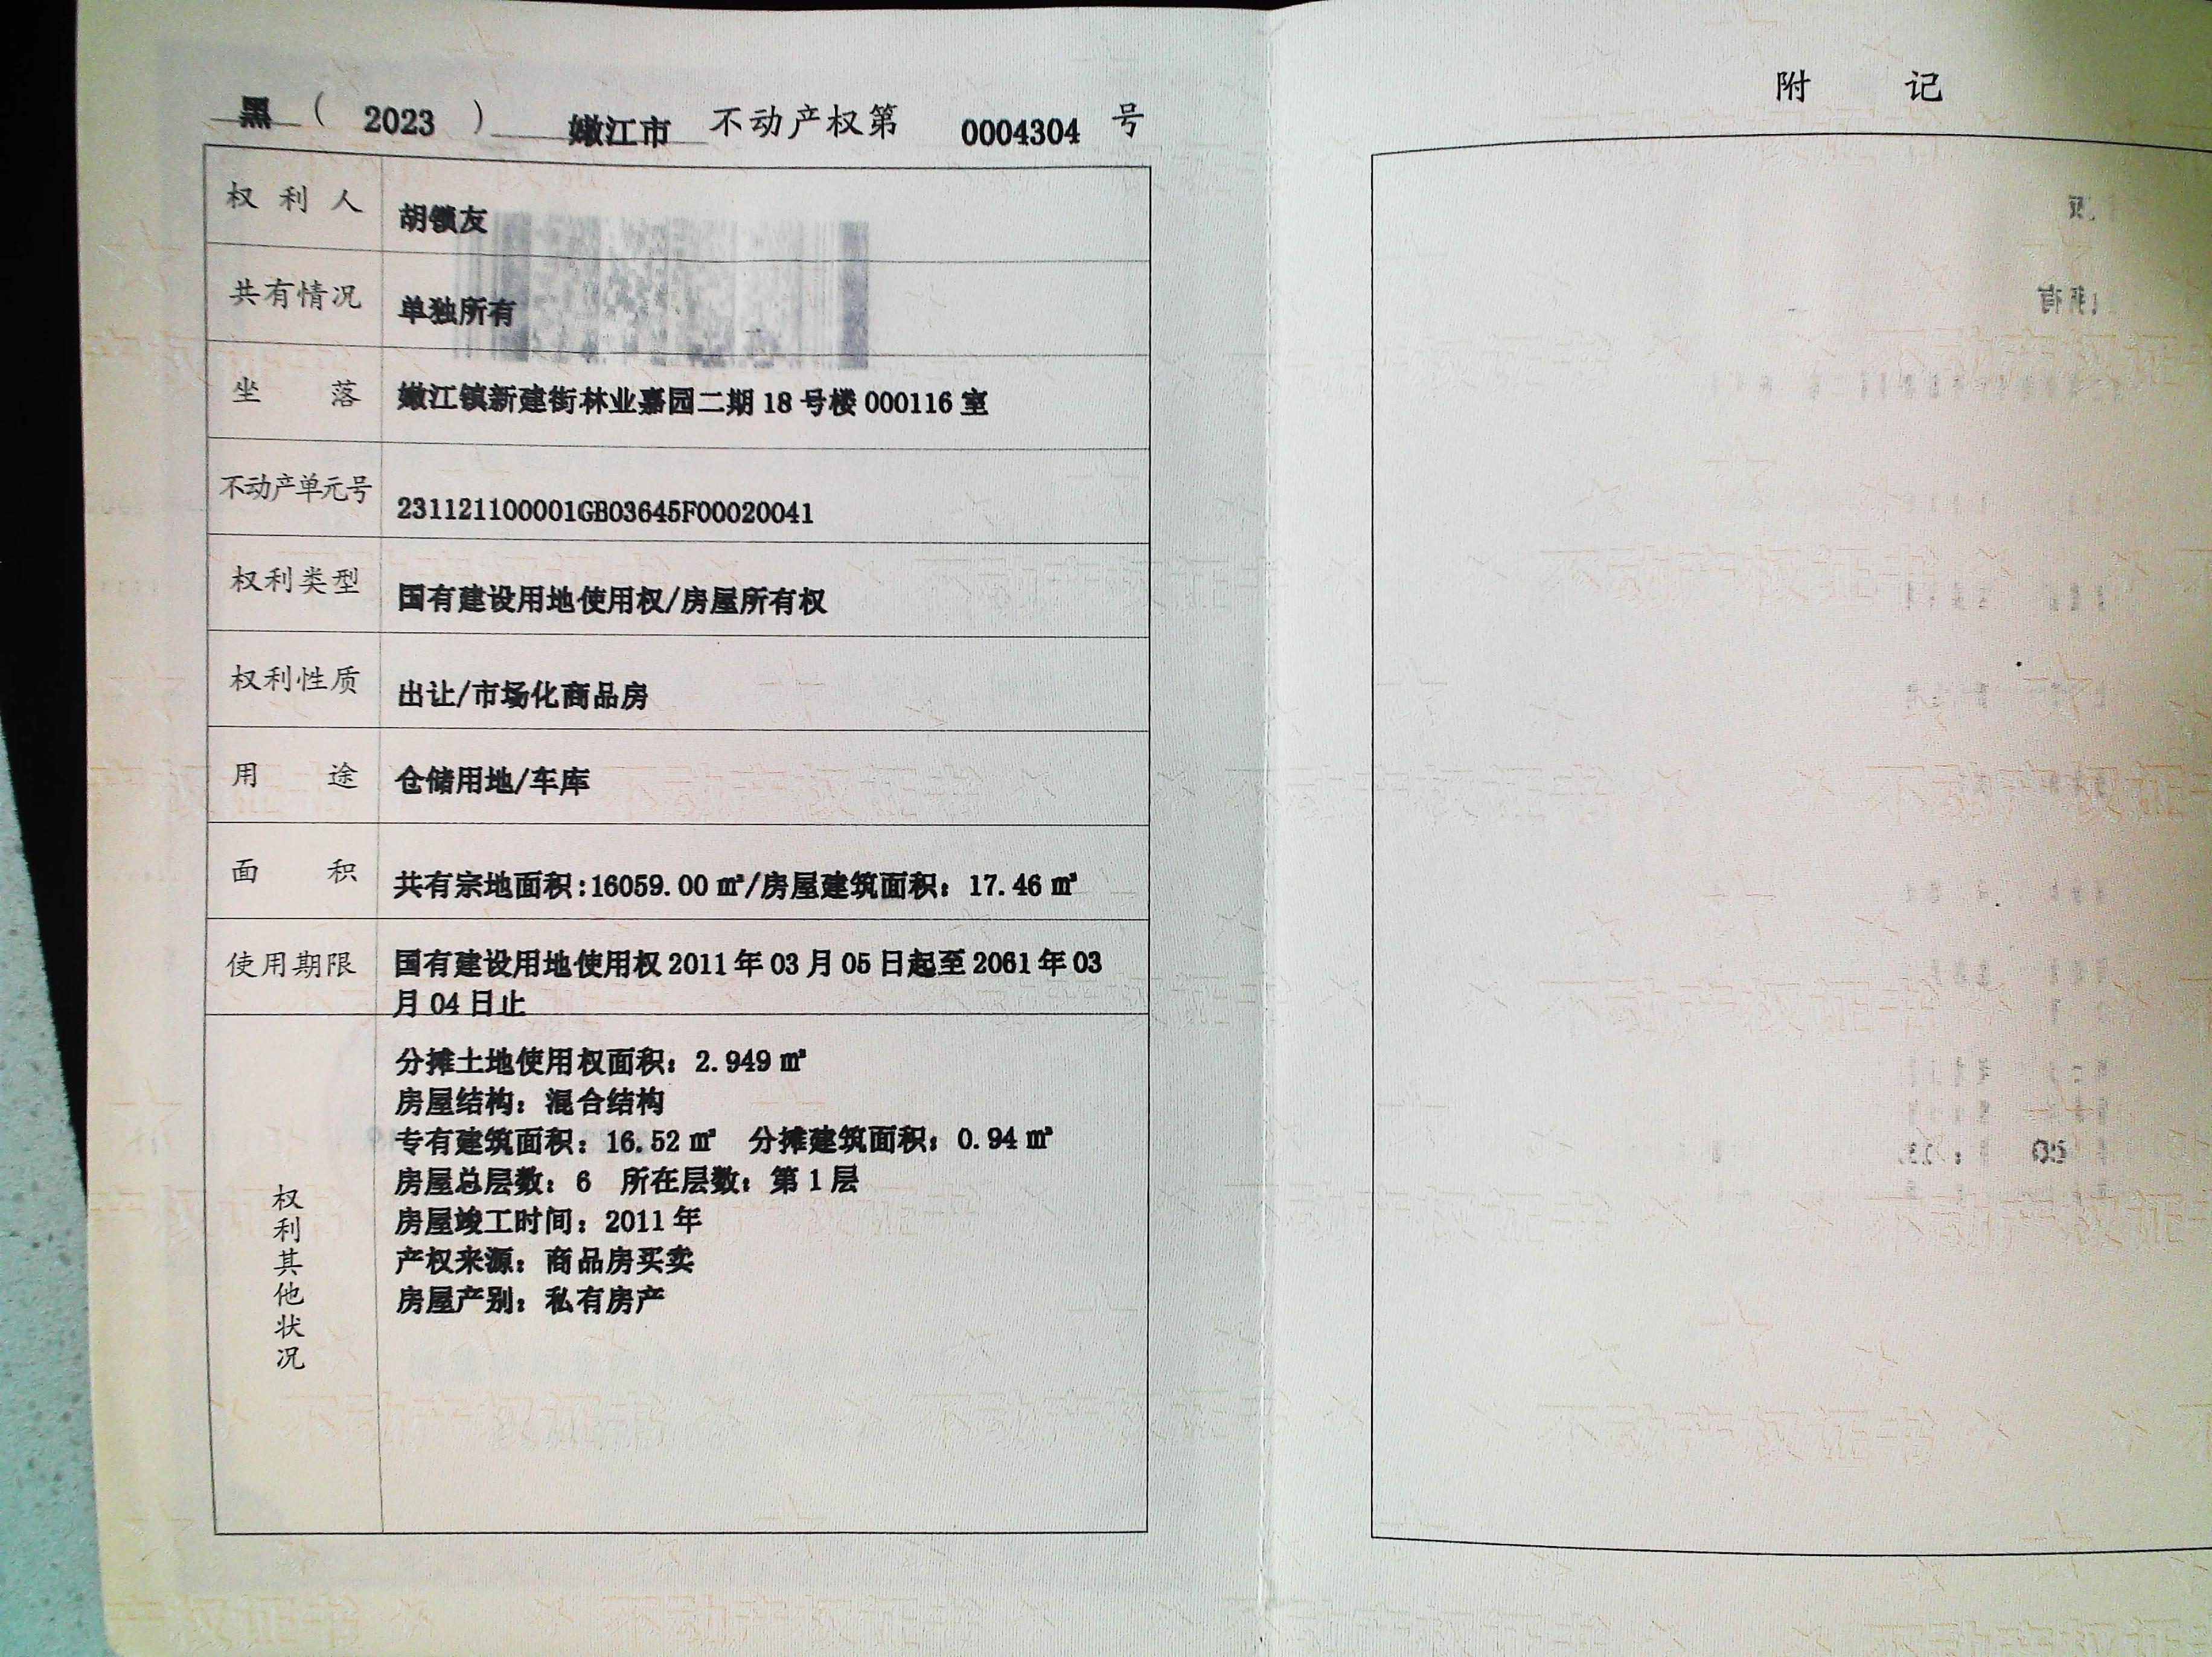 黑（2023）嫩江市不动产权第0004304号
权利人 胡锁友
共有情况 单独所有
坐落 嫩江镇新建街林业嘉园二期18号楼000116室
不动产单元号 231121100001GB03645F00020041
权利类型 国有建设用地使用权/房屋所有权
权利性质 出让/市场化商品房
用途 仓储用地/车库
面积 共有宗地面积:16059.00㎡/房屋建筑面积：17.46㎡
使用期限 国有建设用地使用权2011年03月05日起至2061年03
月04日止
权利其他状况
分摊土地使用权面积：2.949㎡
房屋结构：混合结构
专有建筑面积：16.52㎡ 分摊建筑面积：0.94㎡
房屋总层数：6 所在层数：第1层
房屋竣工时间：2011年
产权来源：商品房买卖
房屋产别：私有房产
附记